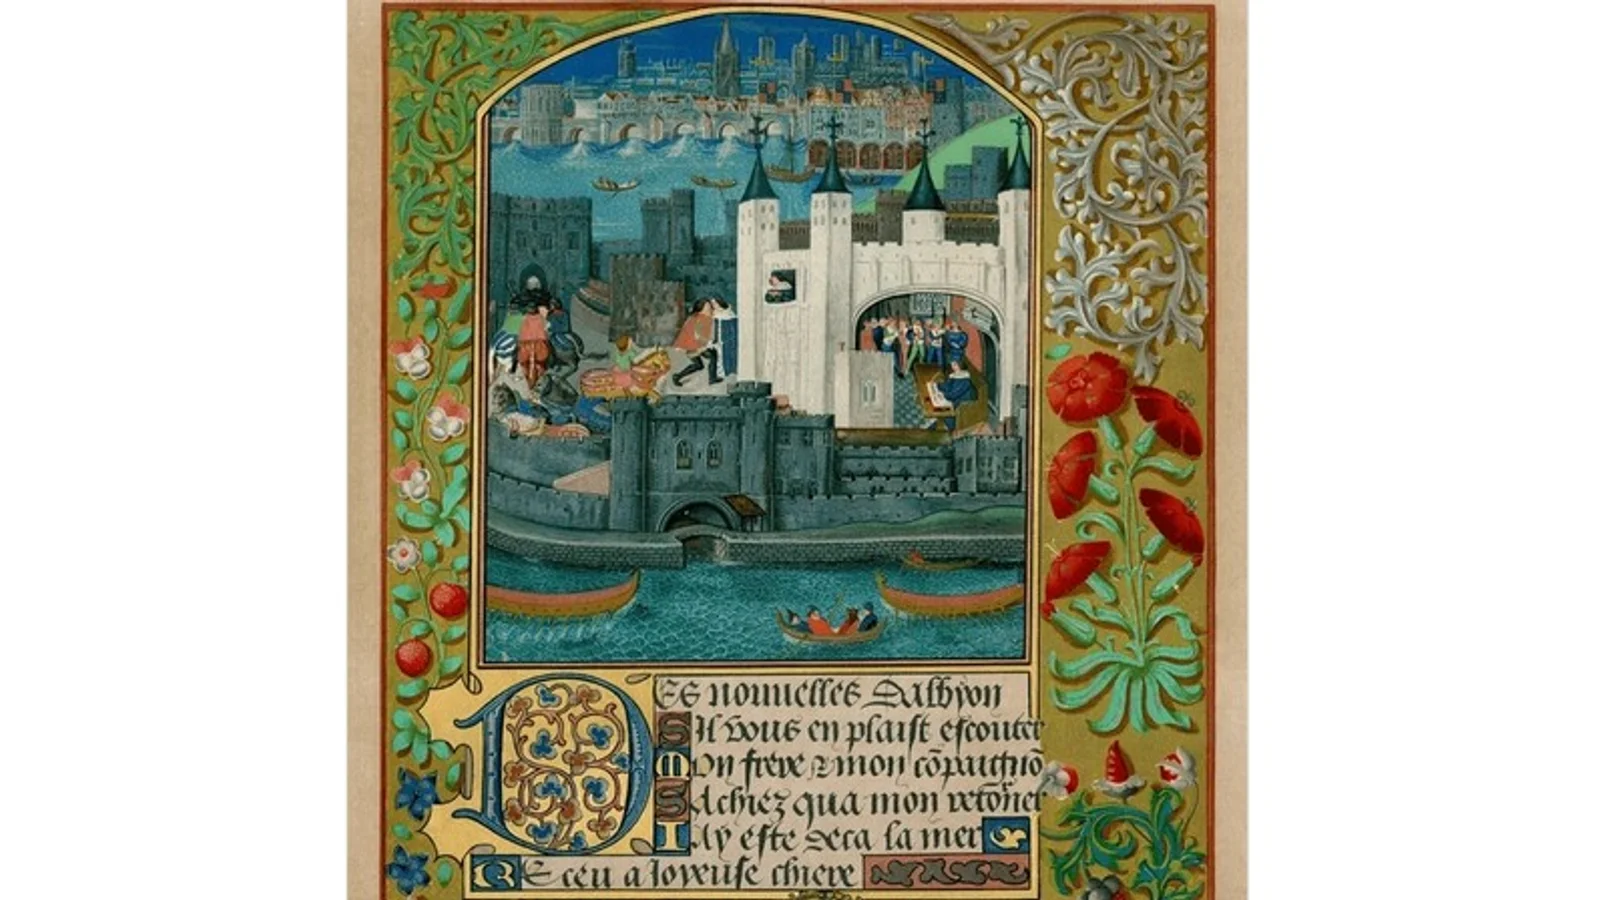 Des nouuelles dalbyon
Sil vous en plaist escouter
Mon frere & mon cōpaignō
Sachiez qua mon retōner
Iay este deca la mer
Receu a Ioyeuse chiere